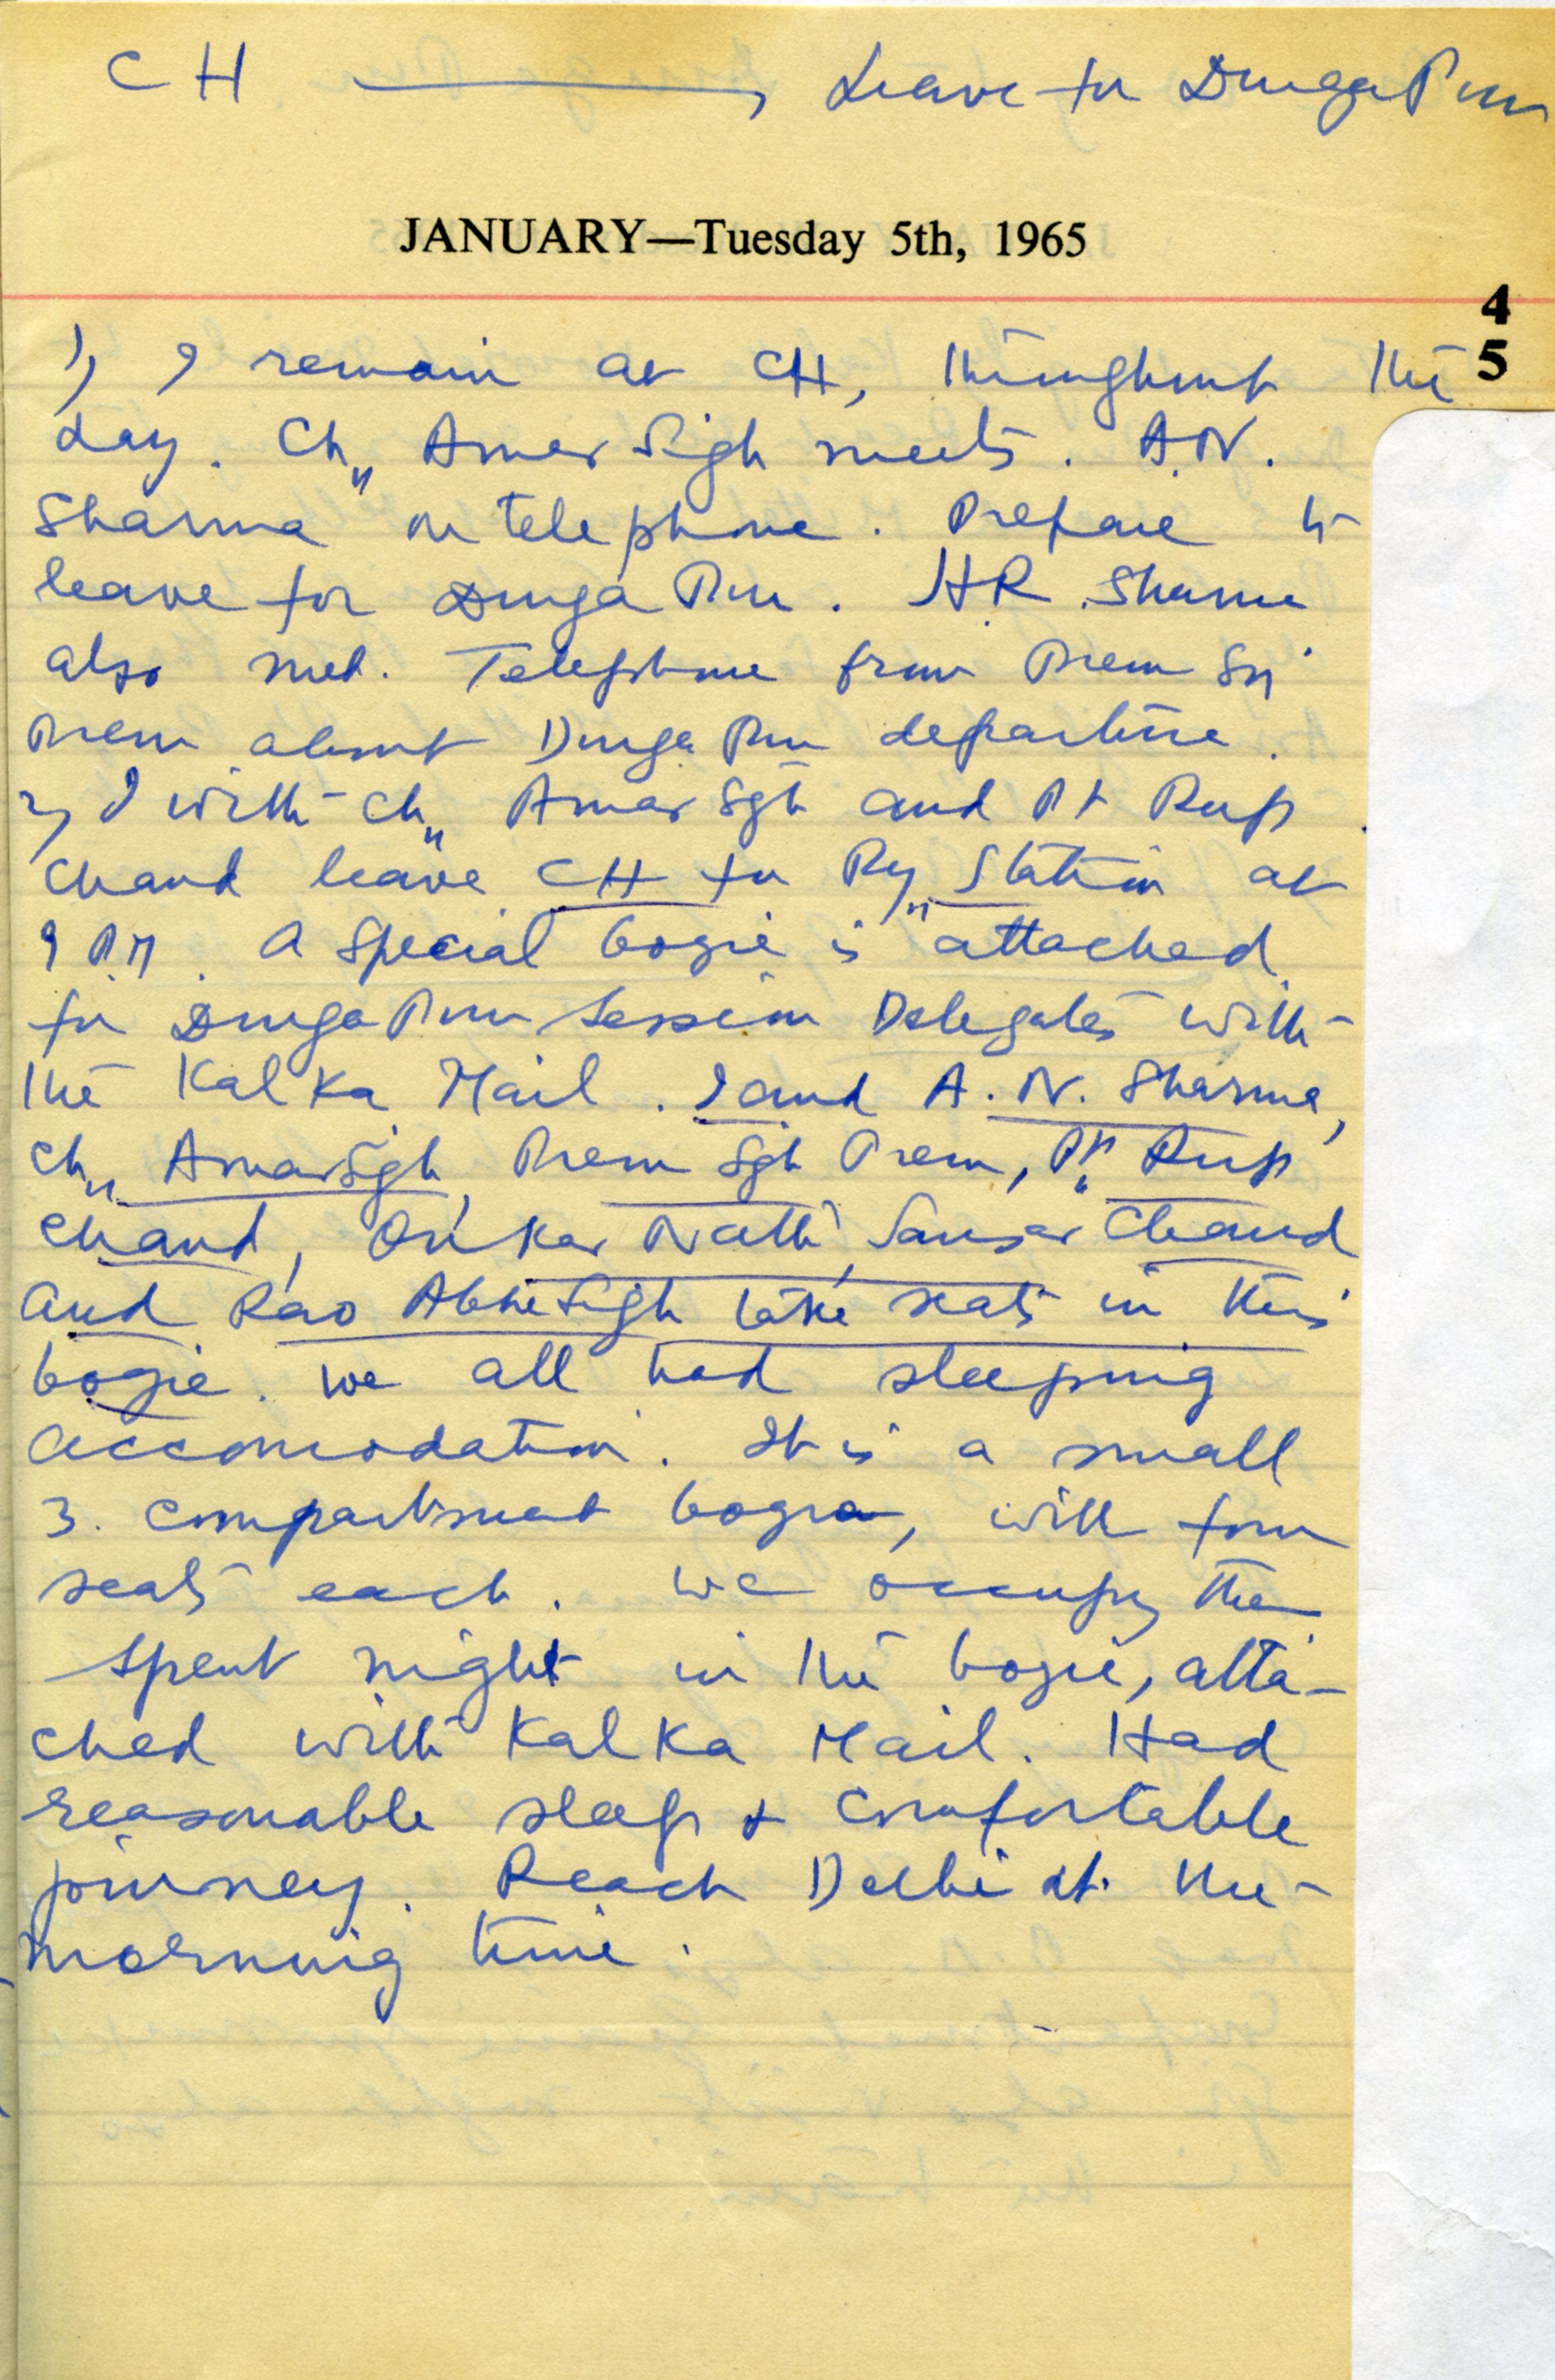 CH ——, Leave for DurgaPur
JANUARY—Tuesday 5th, 1965
4
5
1) I remain at CH, throughout the
day. Ch,, Amar Sigh meets. A.N.
Sharma on telephone. Prepare to
leave for DurgaPur. HR Sharma
also met. Telephone from Prem
Prem about DurgaPur departure.
2) I with Ch,, Amar Sgh and Pt Rup
Chand leave CH for Ry,, Station at
9 P.M. A special bogie is attached
for DurgaPur Session Delegates with
the Kalka Mail. I and A.N. Sharma,
Ch,, Amar Sgh, Prem Sgh Prem, Pt,, Rup
Chand, Onkar Nath, Sansar Chand
and Rao Abhe Sigh take seats in this
bogie. We all had sleeping
accomodation. It is a small
3. compartment bogie, with four
seats each. We occupy them
spent night in the bogie, atta-
ched with Kalka Mail. Had
reasonable sleep & comfortable
journey. Reach Delhi at the
morning time.